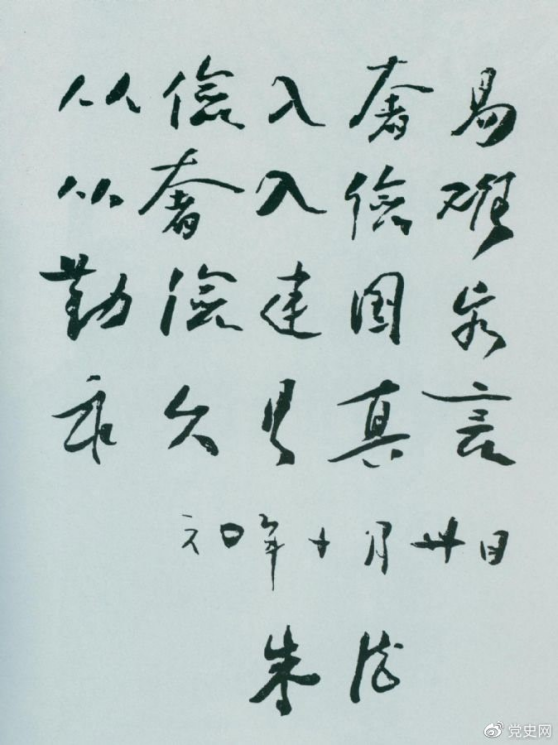 从儉入奢易
从奢入儉难
勤儉建国家
永久是真言
六〇年十月卅日
朱德
党史网